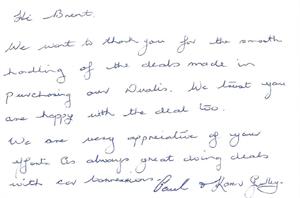 Hi Brent,
We want to thank you for the smooth
handling of the deals made in
purchasing our Dualis. We trust you
are happy with the deal too.
We are very appreciative of your
efforts. As always great doing deals
with car Conversions. Paul &